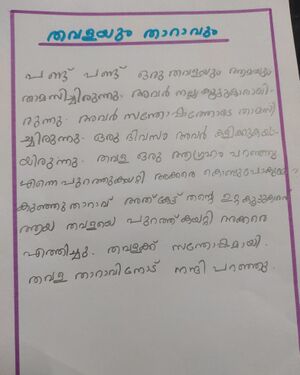 തവളയും താറാവും
പണ്ട് പണ്ട് ഒരു തവളയും ആമയും
താമസിച്ചിരുന്നു. അവർ നല്ല കൂട്ടുകാരായി-
രുന്നു. അവർ സന്തോഷത്തോടെ താമസി
ച്ചിരുന്നു. ഒരു ദിവസം അവർ കളിക്കുകയാ
യിരുന്നു. തവള ഒരു ആഗ്രഹം പറഞ്ഞു
എന്നെ പുറത്തുകയറ്റി അക്കരെ കൊണ്ടുപോകുമോ
കുഞ്ഞു താറാവ് അത് കേട്ട് തന്റെ ഉറ്റ കൂട്ടുകാരൻ
ആയ തവളയെ പുറത്ത് കയറ്റി അക്കരെ
എത്തിച്ചു. തവളക്ക് സന്തോഷമായി.
തവള താറാവിനോട് നന്ദി പറഞ്ഞു.